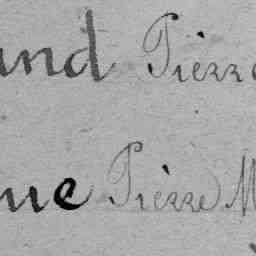 und Pierre
ue Pierre M